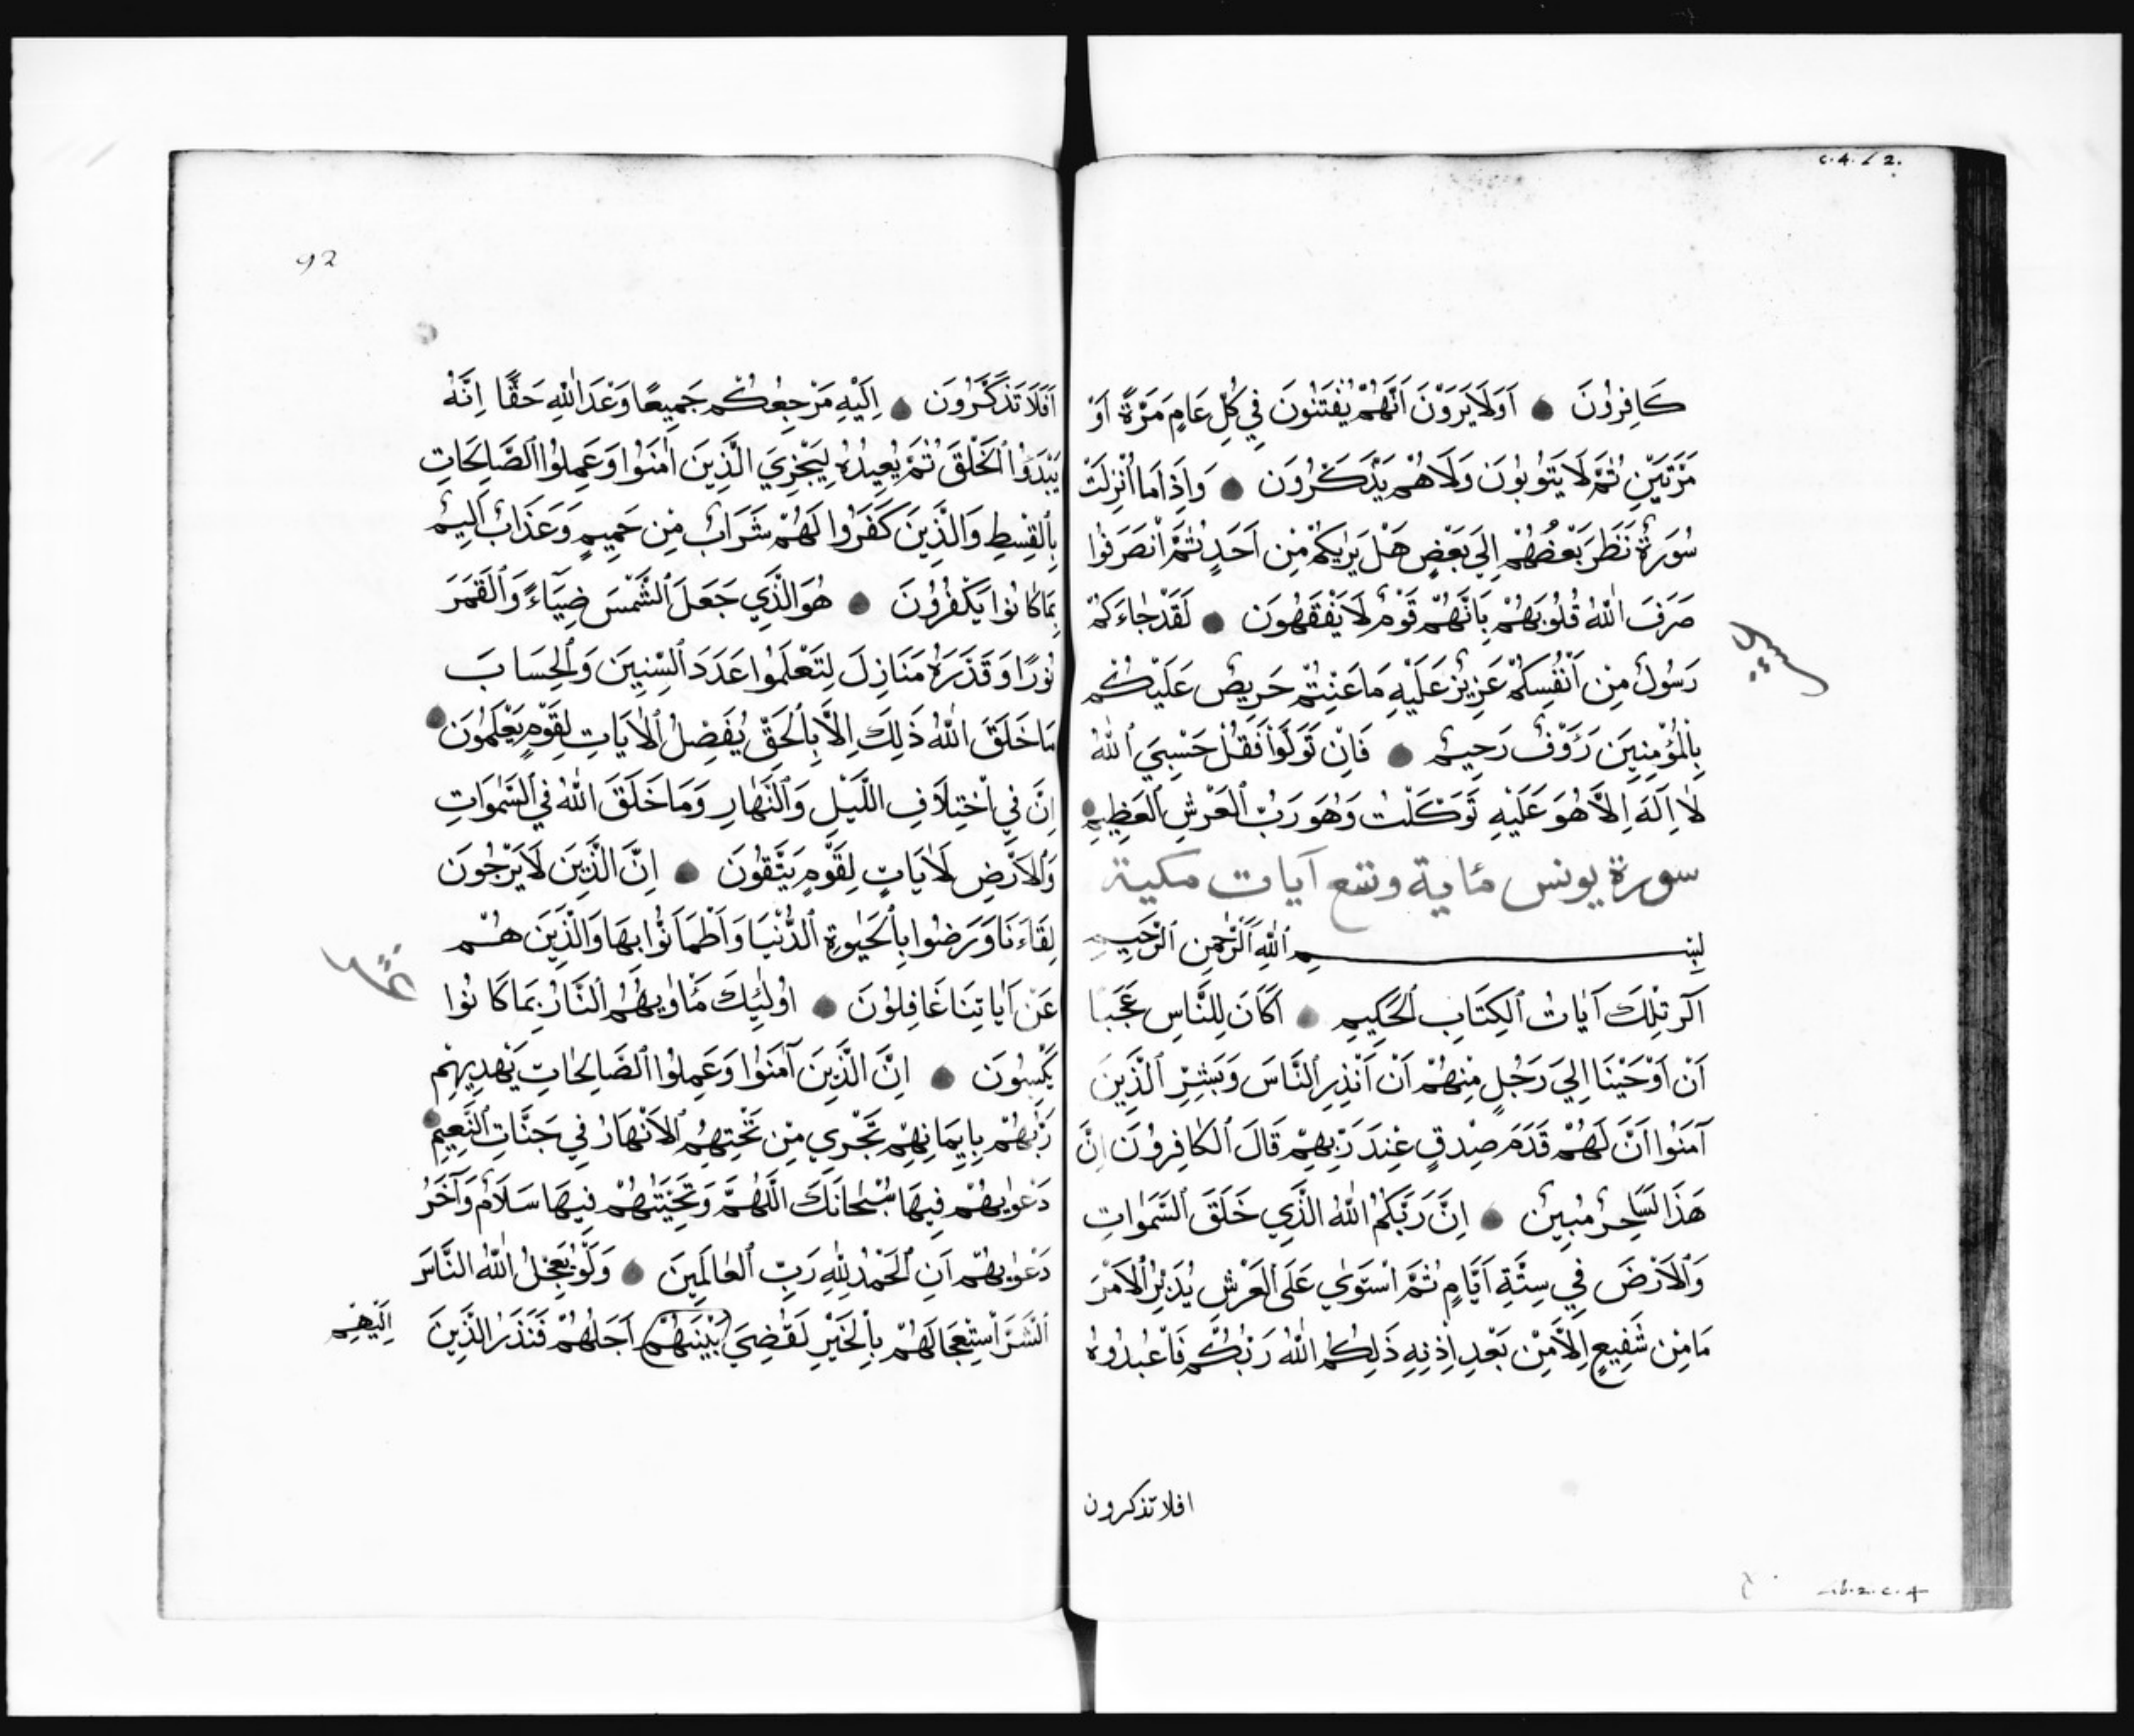 c.4.62.
كَافِرُونَ اَوَلَا يَرَوْنَ اَنَّهُمْ يُفْتَنُونَ فِي كُلِّ عَامٍ مَرَّةً اَوْ
مَرَّتَيْنِ ثُمَّ لَا يَتُوبُونَ وَلَا هُمْ يَذَّكَّرُونَ وَاِذَا مَا اُنْزِلَتْ
سُورَةٌ نَظَرَ بَعْضُهُمْ اِلَي بَعْضٍ هَلْ يَرٰيكُمْ مِنْ اَحَدٍ ثُمَّ انْصَرَفُوا
صَرَفَ اللّٰهُ قُلُوبَهُمْ بِاَنَّهُمْ قَوْمٌ لَا يَفْقَهُونَ لَقَدْ جَاءَكُمْ
رَسُولٌ مِنْ اَنْفُسِكُمْ عَزِيزٌ عَلَيْهِ مَا عَنِتُّمْ حَرِيصٌ عَلَيْكُمْ
بِالْمُؤْمِنِينَ رَؤُوفٌ رَحِيمٌ فَاِنْ تَوَلَّوْا فَقُلْ حَسْبِيَ اللّٰهُ
لَا اِلَهَ اِلَّا هُوَ عَلَيْهِ تَوَكَّلْتُ وَهُوَ رَبُّ الْعَرْشِ الْعَظِيمِ
سورة يونس مئاية وتسع آيات مكية
بِسْمِ اللّٰهِ الرَّحْمٰنِ الرَّحِيمِ
آلر تِلْكَ آيَاتُ الْكِتَابِ الْحَكِيمِ اَكَانَ لِلنَّاسِ عَجَبًا
اَنْ اَوْحَيْنَا اِلَيَ رَجُلٍ مِنْهُمْ اَنْ اَنْذِرِ النَّاسَ وَبَشِّرِ الَّذِينَ
آمَنُوا اَنَّ لَهُمْ قَدَمَ صِدْقٍ عِنْدَ رَبِّهِمْ قَالَ الْكَافِرُونَ اِنَّ
هَذَا لَسَاحِرٌ مُبِينٌ اِنَّ رَبَّكُمُ اللّٰهُ الَّذِي خَلَقَ السَّمٰوَاتِ
وَالْاَرْضَ فِي سِتَّةِ اَيَّامٍ ثُمَّ اسْتَوٰي عَلَى الْعَرْشِ يُدَبِّرُ الْاَمْرَ
مَا مِنْ شَفِيعٍ اِلَّا مِنْ بَعْدِ اِذْنِهِ ذَلِكُمُ اللّٰهُ رَبُّكُمْ فَاعْبُدُوهُ
افلا تذكرون
92
اَفَلَا تَذَكَّرُونَ اِلَيْهِ مَرْجِعُكُمْ جَمِيعًا وَعْدَ اللّٰهِ حَقًّا اِنَّهُ
يَبْدَؤُا الْخَلْقَ ثُمَّ يُعِيدُهُ لِيَجْزِيَ الَّذِينَ اٰمَنُوا وَعَمِلُوا الصَّالِحَاتِ
بِالْقِسْطِ وَالَّذِينَ كَفَرُوا لَهُمْ شَرَابٌ مِنْ حَمِيمٍ وَعَذَابٌ اَلِيمٌ
بِمَا كَانُوا يَكْفُرُونَ هُوَ الَّذِي جَعَلَ الشَّمْسَ ضِيَاءً وَالْقَمَرَ
نُورًا وَقَدَّرَهُ مَنَازِلَ لِتَعْلَمُوا عَدَدَ السِّنِينَ وَالْحِسَابَ
مَا خَلَقَ اللّٰهُ ذَلِكَ اِلَّا بِالْحَقِّ يُفَصِّلُ الْاٰيَاتِ لِقَوْمٍ يَعْلَمُونَ
اِنَّ فِي اخْتِلَافِ اللَّيْلِ وَالنَّهَارِ وَمَا خَلَقَ اللّٰهُ فِي السَّمٰوَاتِ
وَالْاَرْضِ لَاٰيَاتٍ لِقَوْمٍ يَتَّقُونَ اِنَّ الَّذِينَ لَا يَرْجُونَ
لِقَاءَنَا وَرَضُوا بِالْحَيٰوةِ الدُّنْيَا وَاطْمَاَنُّوا بِهَا وَالَّذِينَ هُمْ
عَنْ اٰيَاتِنَا غَافِلُونَ اُولٰئِكَ مَأْوٰيهُمُ النَّارُ بِمَا كَانُوا
يَكْسِبُونَ اِنَّ الَّذِينَ آمَنُوا وَعَمِلُوا الصَّالِحَاتِ يَهْدِيهِمْ
رَبُّهُمْ بِاِيمَانِهِمْ تَجْرِي مِنْ تَحْتِهِمُ الْاَنْهَارُ فِي جَنَّاتِ النَّعِيمِ
دَعْوٰيهُمْ فِيهَا سُبْحَانَكَ اللَّهُمَّ وَتَحِيَّتُهُمْ فِيهَا سَلَامٌ وَآخَرُ
دَعْوٰيهُمْ اَنِ الْحَمْدُ لِلّٰهِ رَبِّ الْعَالَمِينَ وَلَوْ يُعَجِّلُ اللّٰهُ النَّاسَ
الشَّرَّ اسْتِعْجَالَهُمْ بِالْخَيْرِ لَقُضِيَ بَيْنَهُمْ اَجَلُهُمْ فَنَذَرُ الَّذِينَ
اِلَيْهِمْ